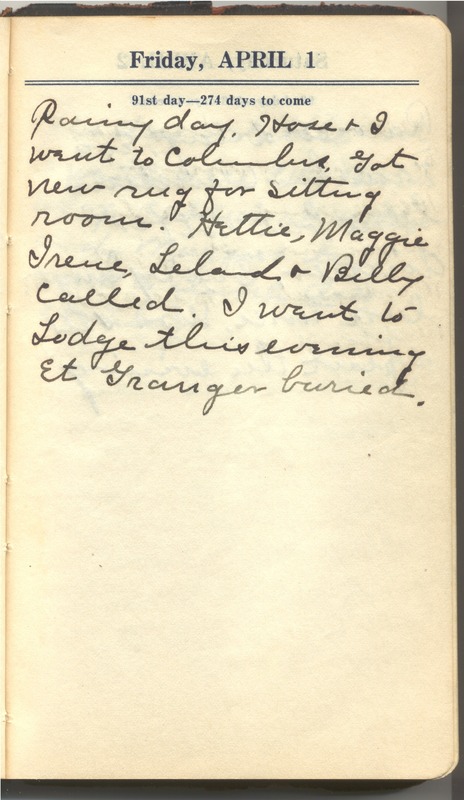 Friday, APRIL 1
91st day—274 days to come
Rainy day. Hose & I
went to Columbus, Got
new rug for sitting
room. Hettie, Maggie
Irene, Leland & Billy
called. I went to
Lodge this evening
Et Granger buried.